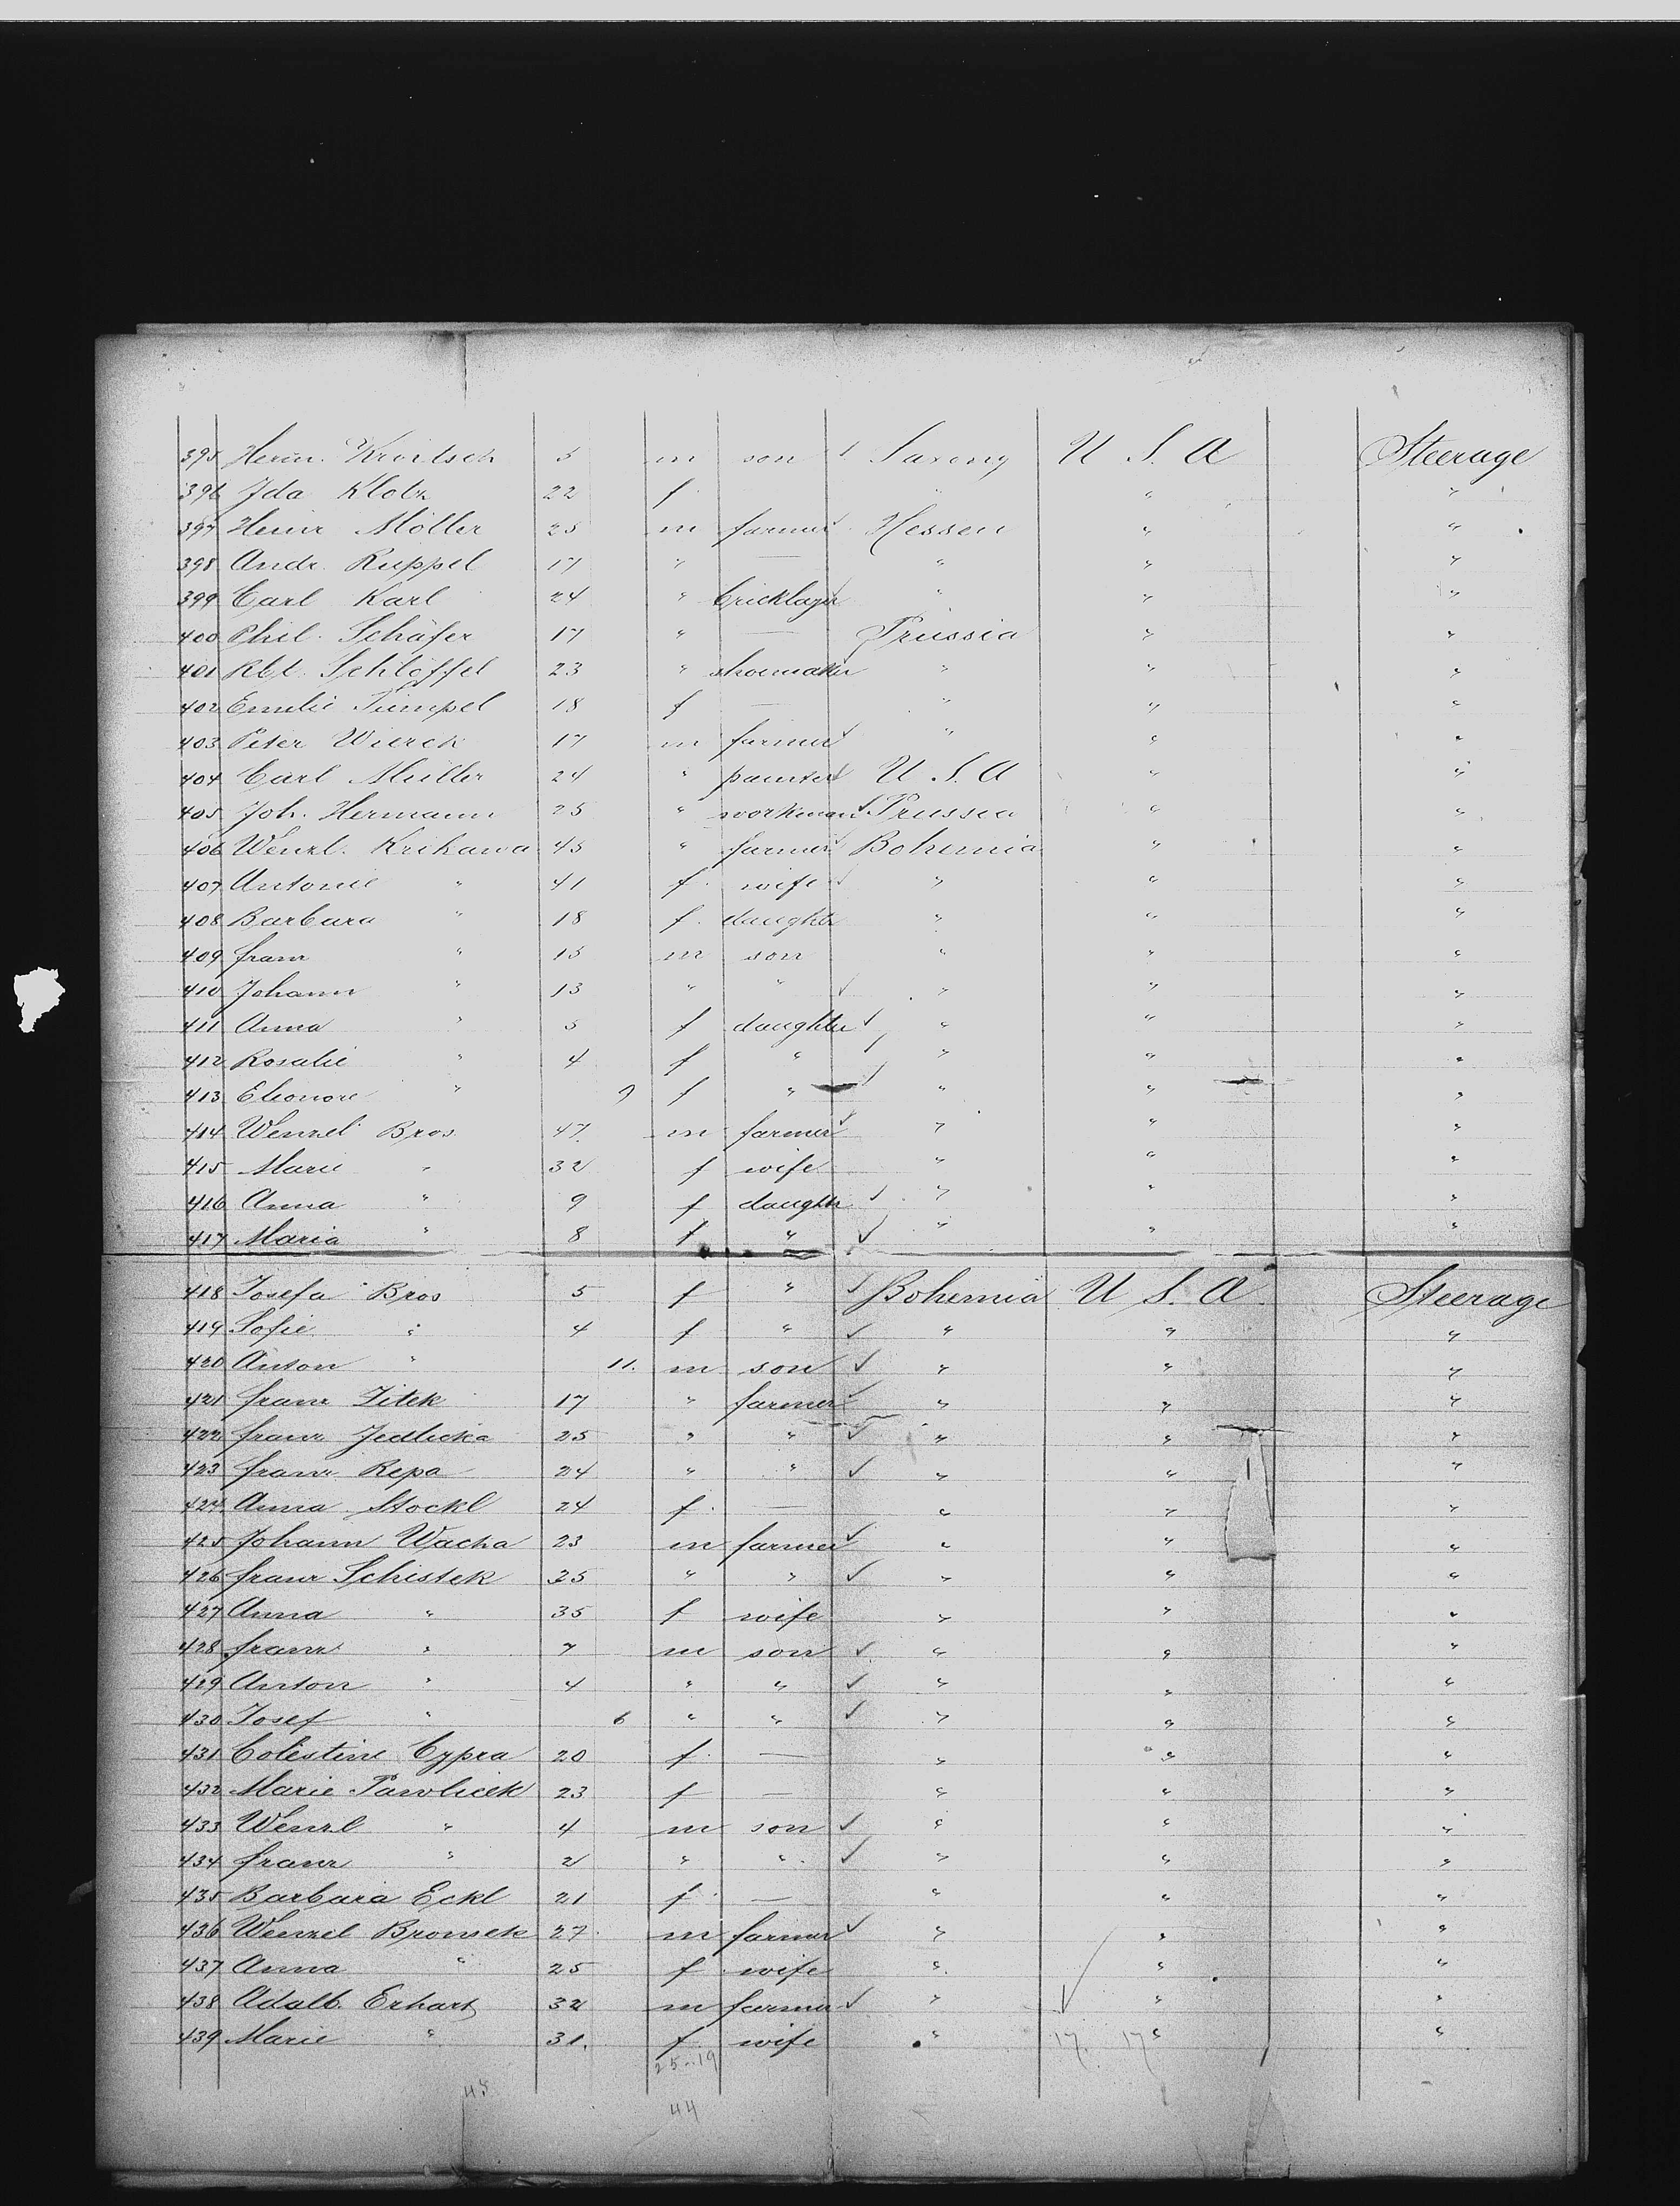 395 Herm. Kroitsch 5 m son Saxony U S. A Steerage
396 Ida Klotz 22 f " " "
397 Heinr Möller 25 m farmer Hessen " "
398 Andr. Ruppel 17 " — " " "
399 Carl Karl 24 " bricklayer " " "
400 Phil. Schäfer 17 " — Prussia " "
401 Rbt. Schlöffel 23 " shoemaker " " "
402 Emilie Tümpel 18 f — " " "
403 Peter Wierck 17 m farmer " " "
404 Carl Müller 24 " painter U. S. A " "
405 Joh. Hermann 25 " workman Prussia " "
406 Wenzl. Krikawa 45 " farmer Bohemia " "
407 Antonie " 41 f. wife " " "
408 Barbara " 18 f. daughter " " "
409 franz " 15 m son " " "
410 Johann " 13 " " " " "
411 Anna " 5 f daughter " " "
412 Rosalie " 4 f " " " "
413 Eleonore " 9 f " " " "
414 Wenzel Bros 47. m farmer " " "
415 Marie " 32 f wife " " "
416 Anna " 9 f daughter " " "
417 Maria " 8 f " " " "
418 Josefa Bros 5 f " Bohemia U S. A. Steerage
419 Sofie " 4 f " " " "
420 Anton " 11. m son " " "
421 franz Zitek 17 " farmer " " "
422 franz Jedlicka 25 " " " " "
423 franz Repa 24 " " " " "
424 Anna Stockl 24 f. — " " "
425 Johann Wacha 23 m farmer " " "
426 franz Schistek 35 " " " " "
427 Anna " 35 f wife " " "
428 franz " 7 m son " " "
429 Anton " 4 " " " " "
430 Josef " 6 " " " " "
431 Colestine Cypra 20 f. — " " "
432 Marie Pawlicek 23 f — " " "
433 Wenzl " 4 m son " " "
434 franz " 2 " " " " "
435 Barbara Eckl 21 f. — " " "
436 Wenzel Bronsek 27. m farmer " " "
437 Anna " 25 f wife " " "
438 Adalb. Erhart 32 m farmer " " "
439 Marie " 31. f wife " " "
17. 17
25-19
45
44